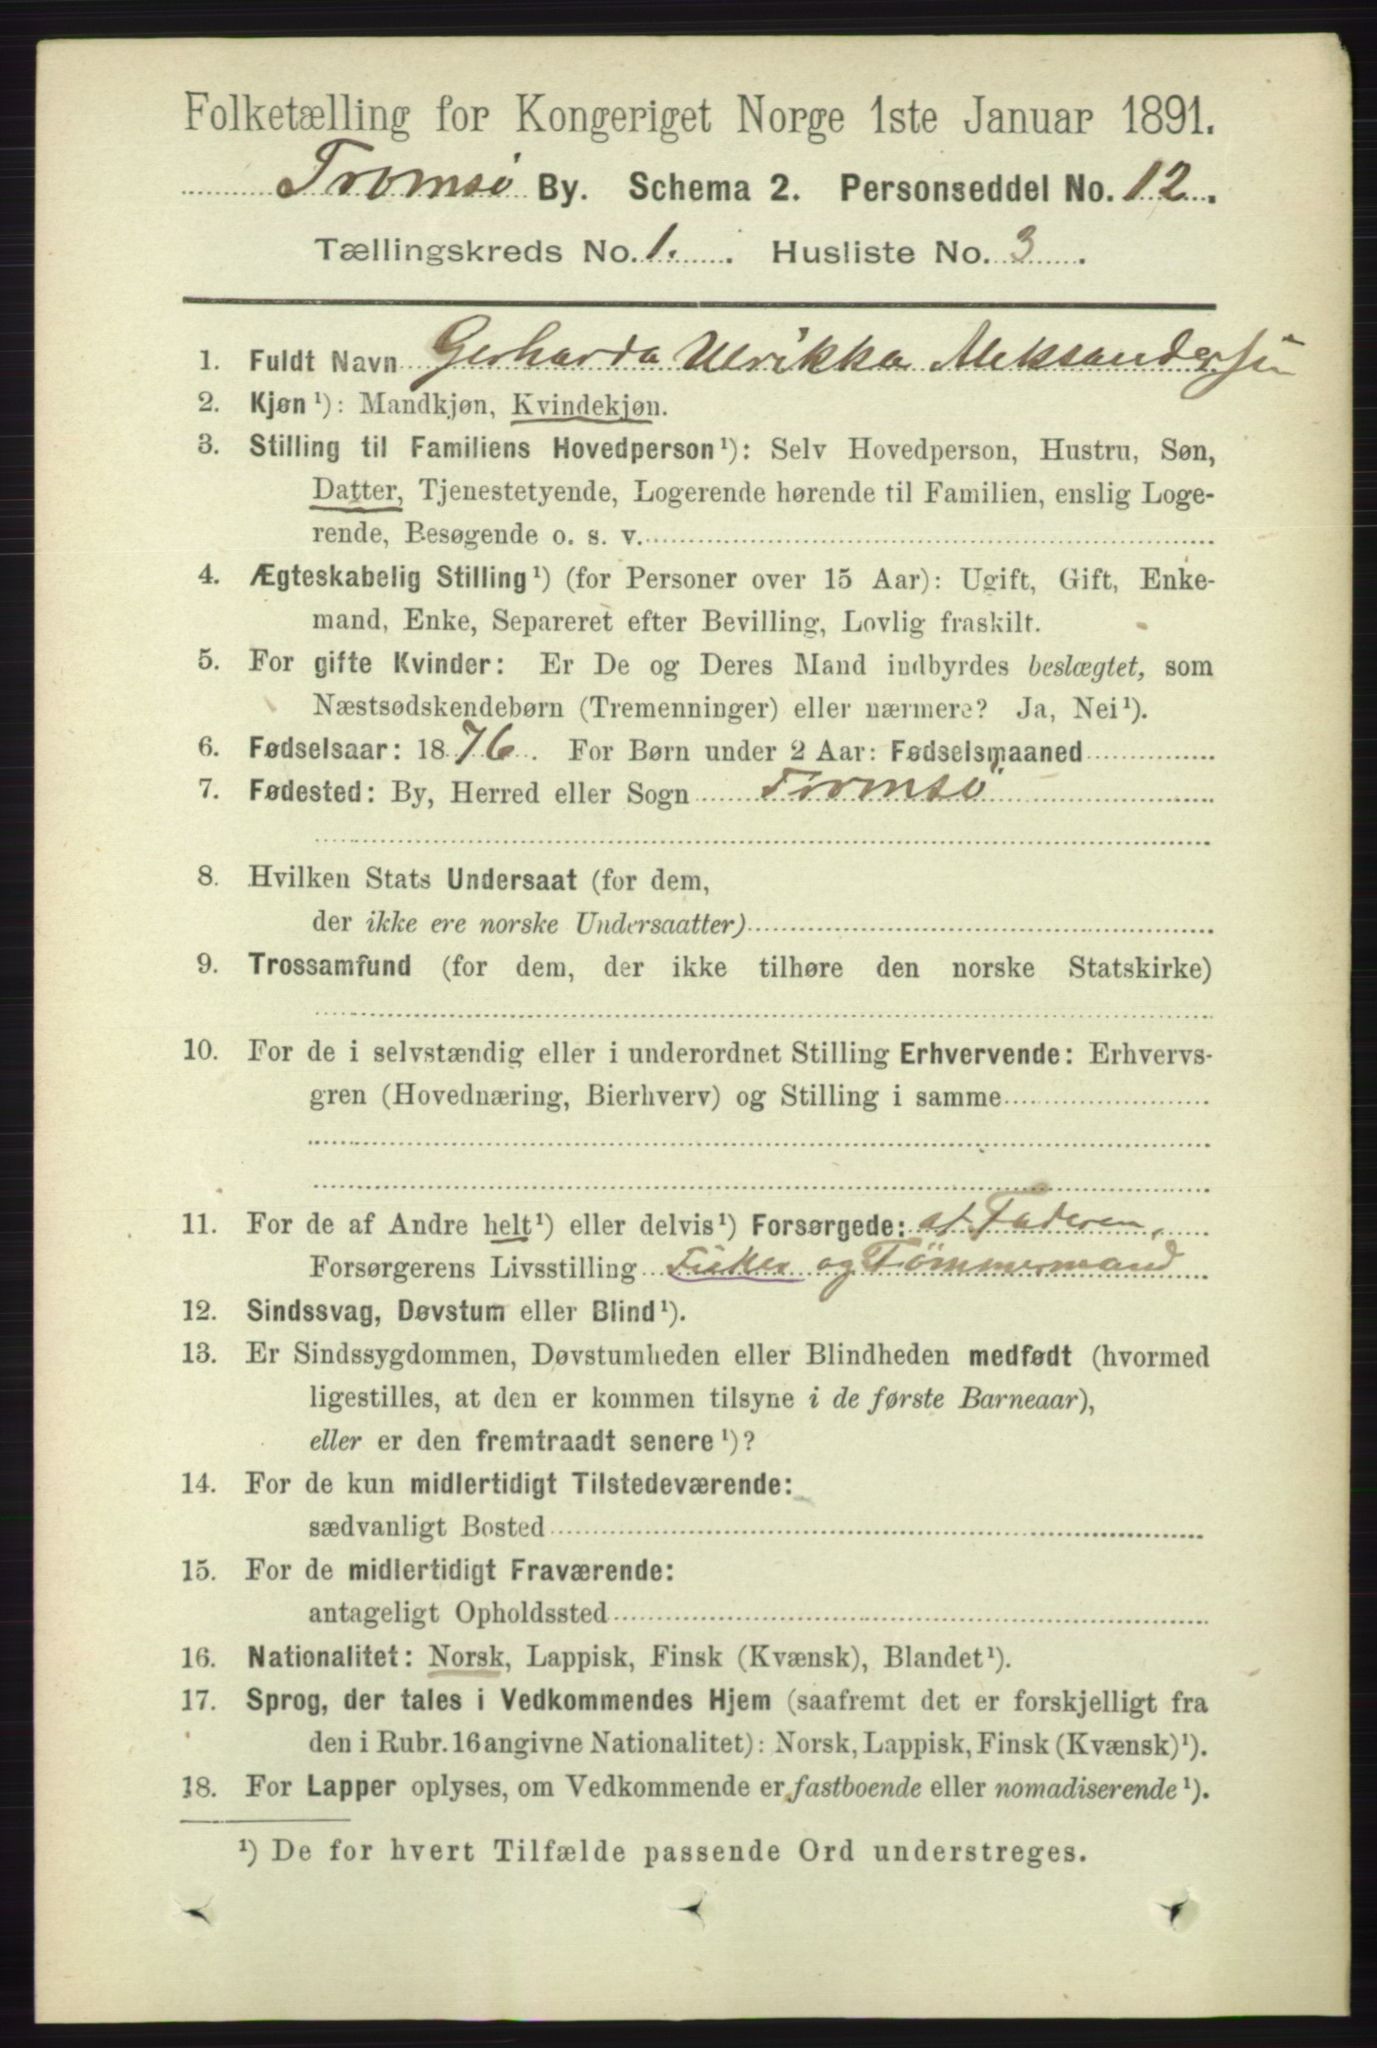 Folketælling for Kongeriget Norge 1ste Januar 1891.
Tromsø By. Schema 2. Personseddel No. 12.
Tællingskreds No. 1. Husliste No. 3.
1. Fuldt Navn Gerharda Ulrikka Aleksandersen
2. Kjøn¹): Mandkjøn, Kvindekjøn.
3. Stilling til Familiens Hovedperson¹): Selv Hovedperson, Hustru, Søn,
Datter, Tjenestetyende, Logerende hørende til Familien, enslig Loge-
rende, Besøgende o. s. v.
4. Ægteskabelig Stilling¹) (for Personer over 15 Aar): Ugift, Gift, Enke-
mand, Enke, Separeret efter Bevilling, Lovlig fraskilt.
5. For gifte Kvinder: Er De og Deres Mand indbyrdes beslægtet, som
Næstsødskendebørn (Tremenninger) eller nærmere? Ja, Nei¹).
6. Fødselsaar: 1876. For Børn under 2 Aar: Fødselsmaaned
7. Fødested: By, Herred eller Sogn Tromsø
8. Hvilken Stats Undersaat (for dem,
der ikke ere norske Undersaatter)
9. Trossamfund (for dem, der ikke tilhøre den norske Statskirke)
10. For de i selvstændig eller i underordnet Stilling Erhvervende: Erhvervs-
gren (Hovednæring, Bierhverv) og Stilling i samme
11. For de af Andre helt¹) eller delvis¹) Forsørgede: af Faderen,
Forsørgerens Livsstilling Fisker og Tømmermand
12. Sindssvag, Døvstum eller Blind¹).
13. Er Sindssygdommen, Døvstumheden eller Blindheden medfødt (hvormed
ligestilles, at den er kommen tilsyne i de første Barneaar),
eller er den fremtraadt senere¹)?
14. For de kun midlertidigt Tilstedeværende:
sædvanligt Bosted
15. For de midlertidigt Fraværende:
antageligt Opholdssted
16. Nationalitet: Norsk, Lappisk, Finsk (Kvænsk), Blandet¹).
17. Sprog, der tales i Vedkommendes Hjem (saafremt det er forskjelligt fra
den i Rubr. 16 angivne Nationalitet): Norsk, Lappisk, Finsk (Kvænsk)¹).
18. For Lapper oplyses, om Vedkommende er fastboende eller nomadiserende¹).
¹) De for hvert Tilfælde passende Ord understreges.